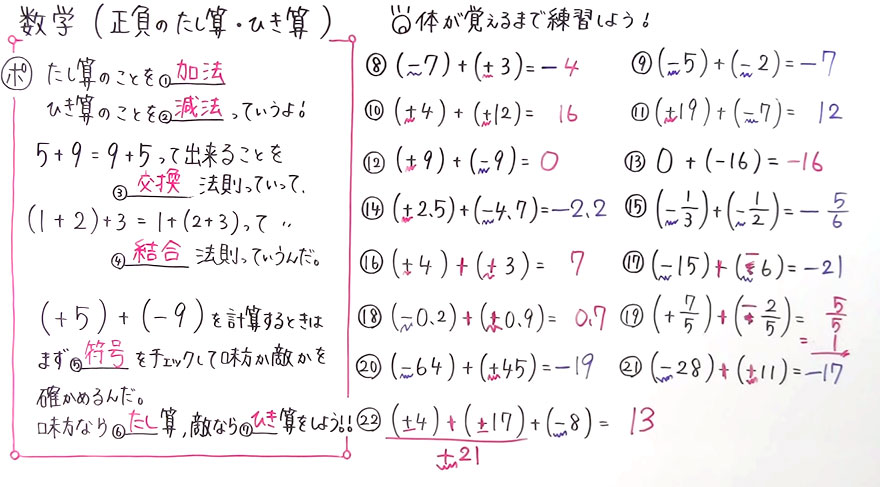 数学（正負のたし算・ひき算）
体が覚えるまで練習しよう！
ポ たし算のことを①加法
ひき算のことを②減法っていうよ！
5+9=9+5って出来ることを
③交換 法則っていって、
(1+2)+3=1+(2+3)って 〃
④結合 法則っていうんだ。
(+5)+(-9)を計算するときは
まず⑤符号をチェックして味方か敵かを
確かめるんだ。
味方なら⑥たし算,敵なら⑦ひき算をしよう!!
⑧(-7)+(+3)=-4
⑨(-5)+(-2)=-7
⑩(+4)+(+12)=16
⑪(+19)+(-7)=12
⑫(+9)+(-9)=0
⑬0+(-16)=-16
⑭(+2.5)+(-4.7)=-2.2
⑮(-1/3)+(-1/2)=-5/6
⑯(+4)+(+3)=7
⑰(-15)+(-6)=-21
⑱(-0.2)+(+0.9)=0.7
⑲(+7/5)+(-2/5)=5/5
=1
⑳(-64)+(+45)=-19
㉑(-28)+(+11)=-17
㉒(+4)+(+17)+(-8)=13
+21